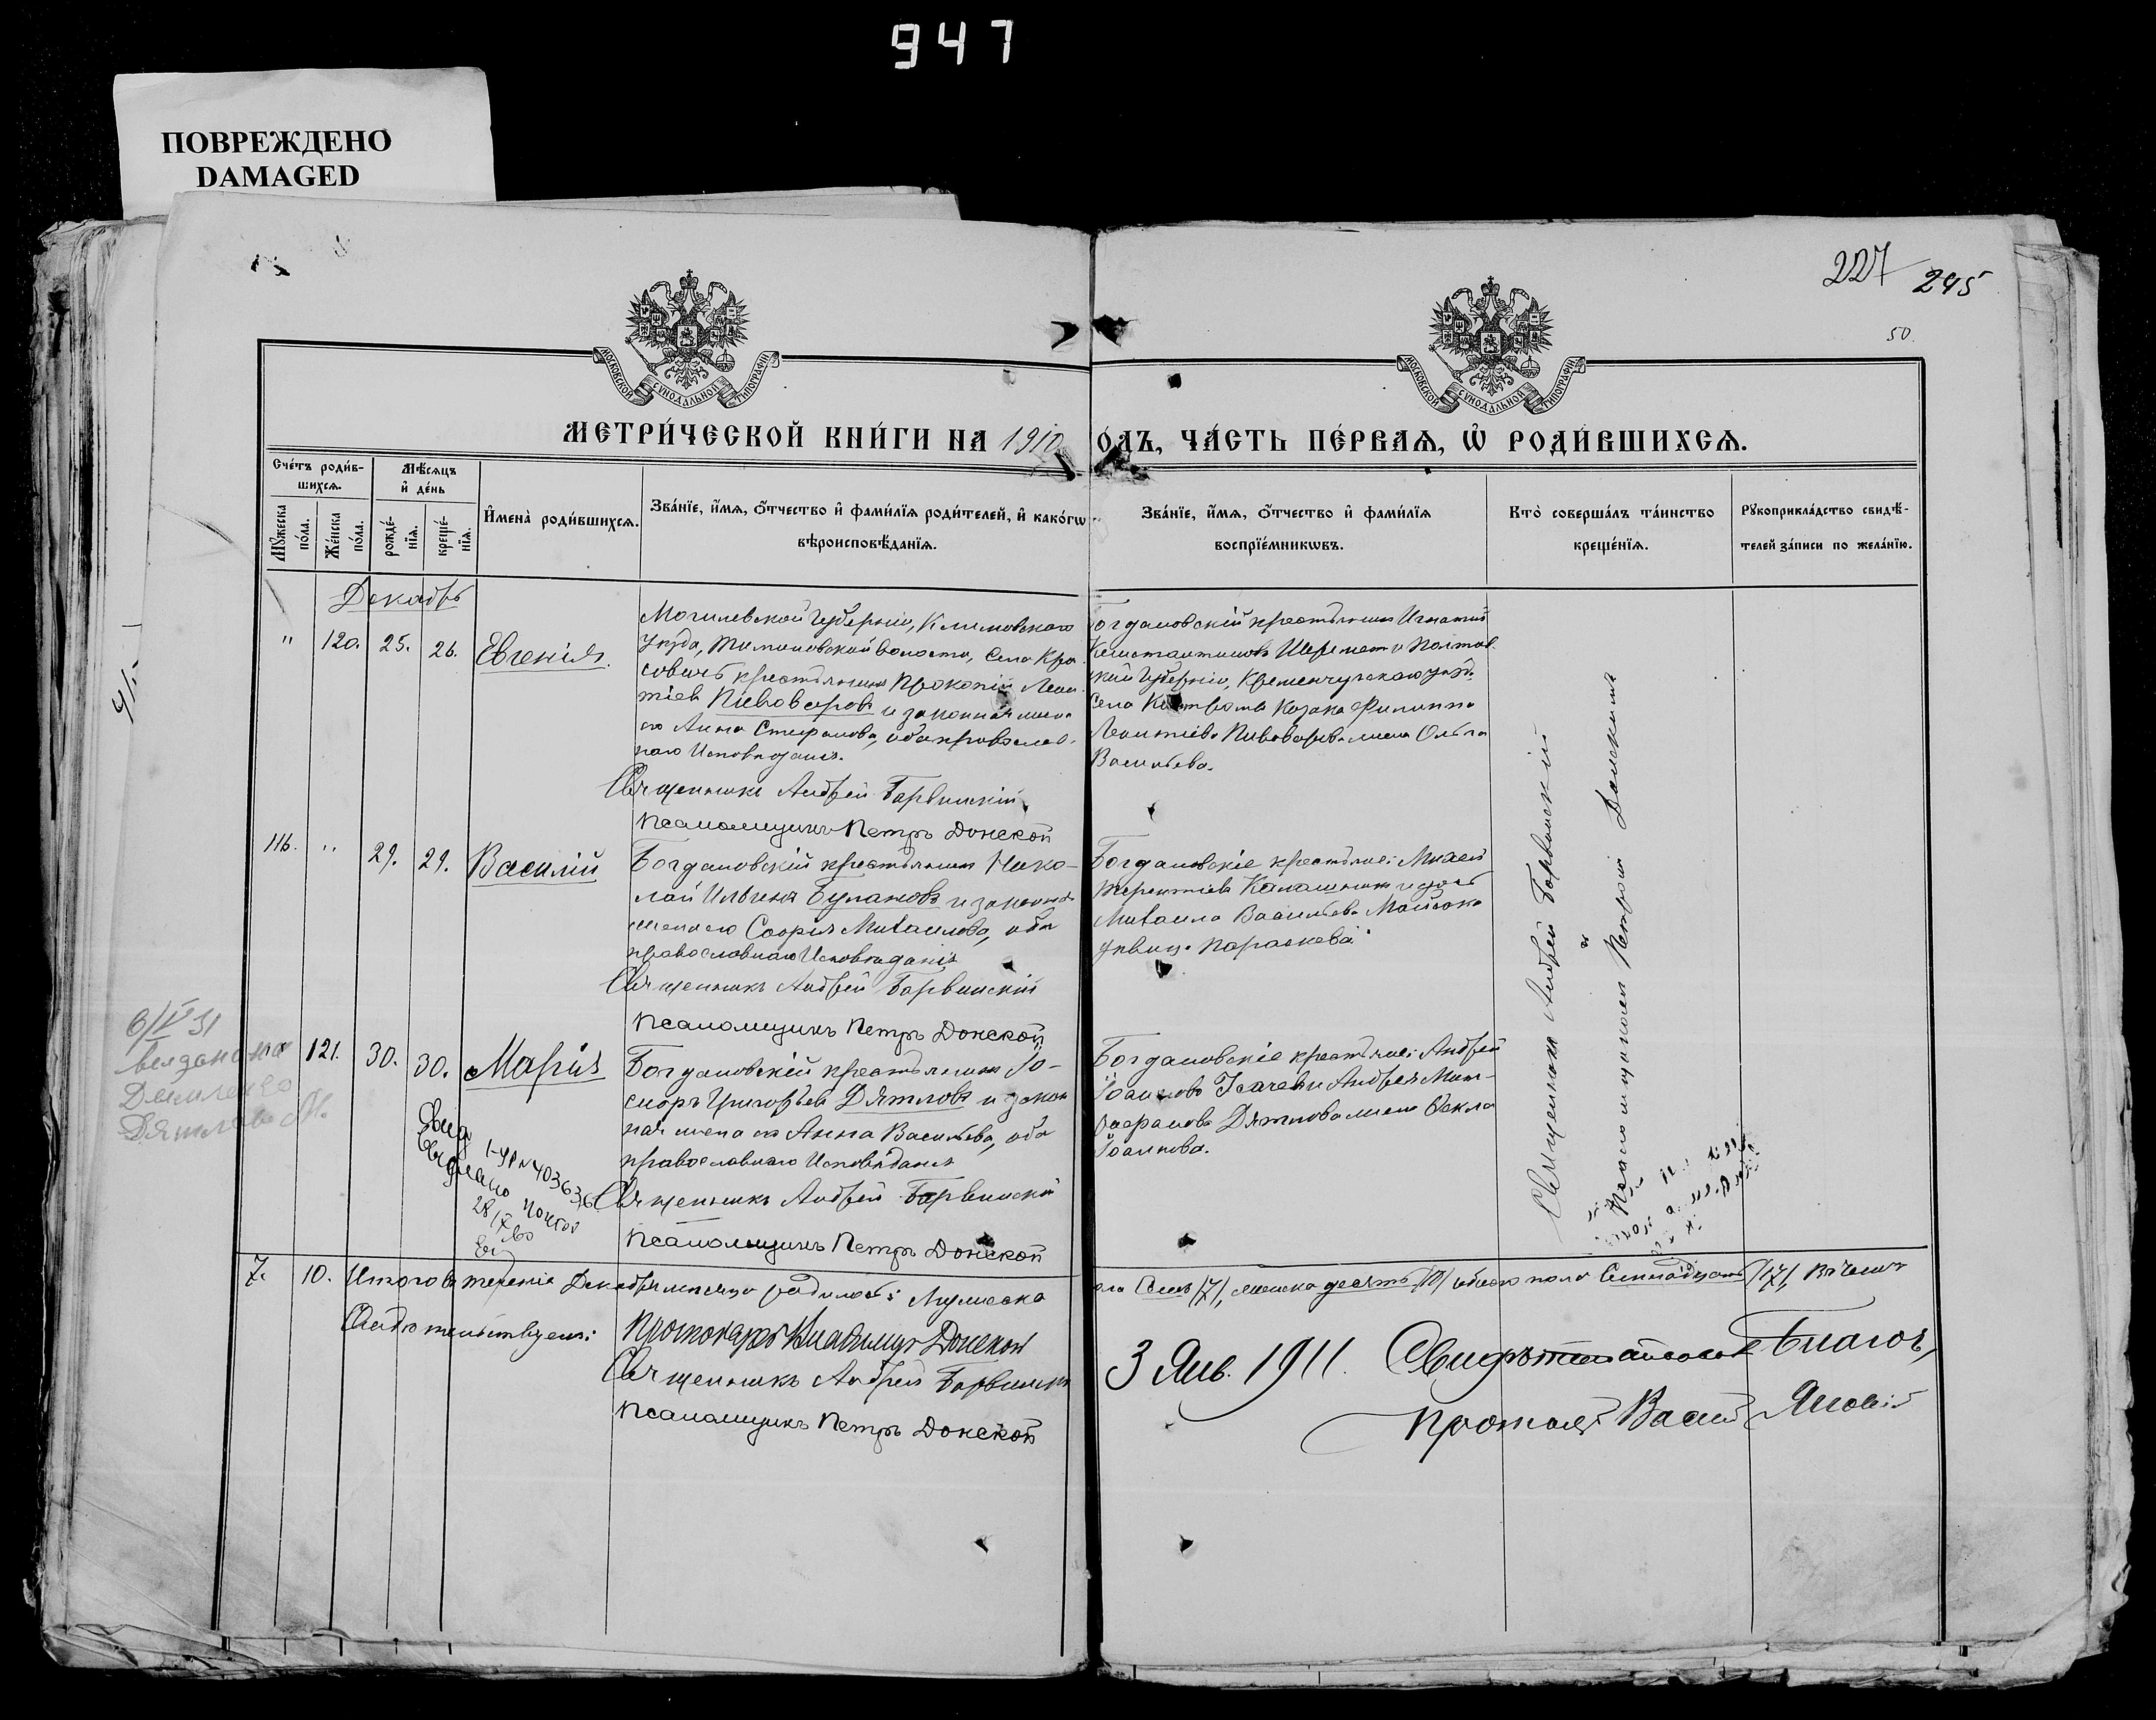 947
ПОВРЕЖДЕНО
DAMAGED
227 245
50.
МОСКОВСКОЙ СѴНОДАЛЬНОЙ ТИПОГРАФІИ
МОСКОВСКОЙ СѴНОДАЛЬНОЙ ТИПОГРАФІИ
МЕТРИ́ЧЕСКОЙ КНИ́ГИ НА 1910
ОДЪ, ЧА́СТЬ ПЕ́РВАѦ, Ѡ҆ РОДИ́ВШИХСѦ.
Сче́тъ роди́в-
шихсѧ.
Мѣ́сѧцъ
и҆ де́нь
Мꙋ́жеска
по́ла.
Же́нска
по́ла.
рожде́-
нїѧ.
креще́-
нїѧ.
И҆мена̀ роди́вшихсѧ.
Зва́нїе, и҆́мѧ, ѻ҆́тчество и҆ фами́лїѧ роди́телей, и҆ како́гѡ
вѣроисповѣ́данїѧ.
Зва́нїе, и҆́мѧ, ѻ҆́тчество и҆ фами́лїѧ
воспрїе́мникѡвъ.
Кто̀ соверша́лъ та́инство
креще́нїѧ.
Рꙋкоприкла́дство свидѣ́-
телей за́писи по жела́нїю.
Декабрь
" 120. 25. 26. Евгенія.
Могилевской Губерніи, Климовскаго
Уѣзда, Тимоновской волости, Села Кра-
совичъ крестьянинъ Прокопій Леон-
тіевъ Пивоваровъ и законная жена
его Анна Стефанова, оба православ-
наго Исповѣданія.
Священникъ Андрей Барвинскій
Псаломщикъ Петръ Донской
огдановскій крестьянинъ Игнатій
Константиновъ Шереметъ и Полтав
кой Губерніи, Кременчугскаго уѣзд.
Села козака Филиппа
Леонтіева Пивоварова жена Ольга
Васильева.
116. " 29. 29. Василій
Богдановскій крестьянинъ Нико-
лай Ильинъ Булановъ и законная
жена его Софія Михаилова, оба
православнаго Исповѣданія
Священникъ Андрей Барвинскій
Псаломщикъ Петръ Донской
Богдановскіе крестьяне: Михей
Терентіевъ Калашникъ и дочь
Михаила Васильева
дѣвица Параскева
121. 30. 30. Марія
Богдановскій крестьянинъ Іо-
Григорьевъ Дятловъ и закон
ная жена его Анна Васильева, оба
православнаго Исповѣданія
Священникъ Андрей Барвинскій
Псаломщикъ Петръ Донской
Богдановскіе крестьяне: Андрей
Іоанновъ и Андрея Мит-
рофанова Дятлова жена Ѳекла
Іоаннова.
6/IV 31
выдана на
Дятлова М.
1-УР N 403636
28
Священникъ Андрей Барвинскій
и
Псаломщикъ Петръ Донской
7. 10. Итого въ теченіе Декабря мѣсяца родилось: Мужеска
ола Семь /7/, женска десять /10/ обоего пола Семнадцать /17/,
Свидѣтельствуемъ: Протоіерей Владиміръ Донской
Священникъ Андрей Барвинскій
Псаломщикъ Петръ Донской
3 Янв. 1911. Свидѣтельствовалъ Благоч.
Протоіер. Васил